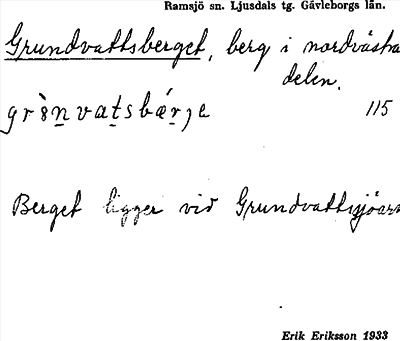 Ramsjö sn. Ljusdals tg. Gävleborgs län.
Grundvattsberget, berg i nordvästra
delen.
115
Berget ligger vid
Erik Eriksson 1933